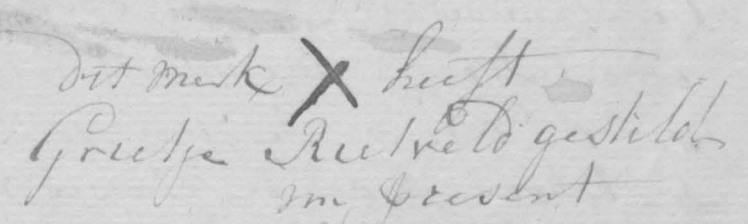 dit merk X heeft
Grietje Rietveld gesteld
present